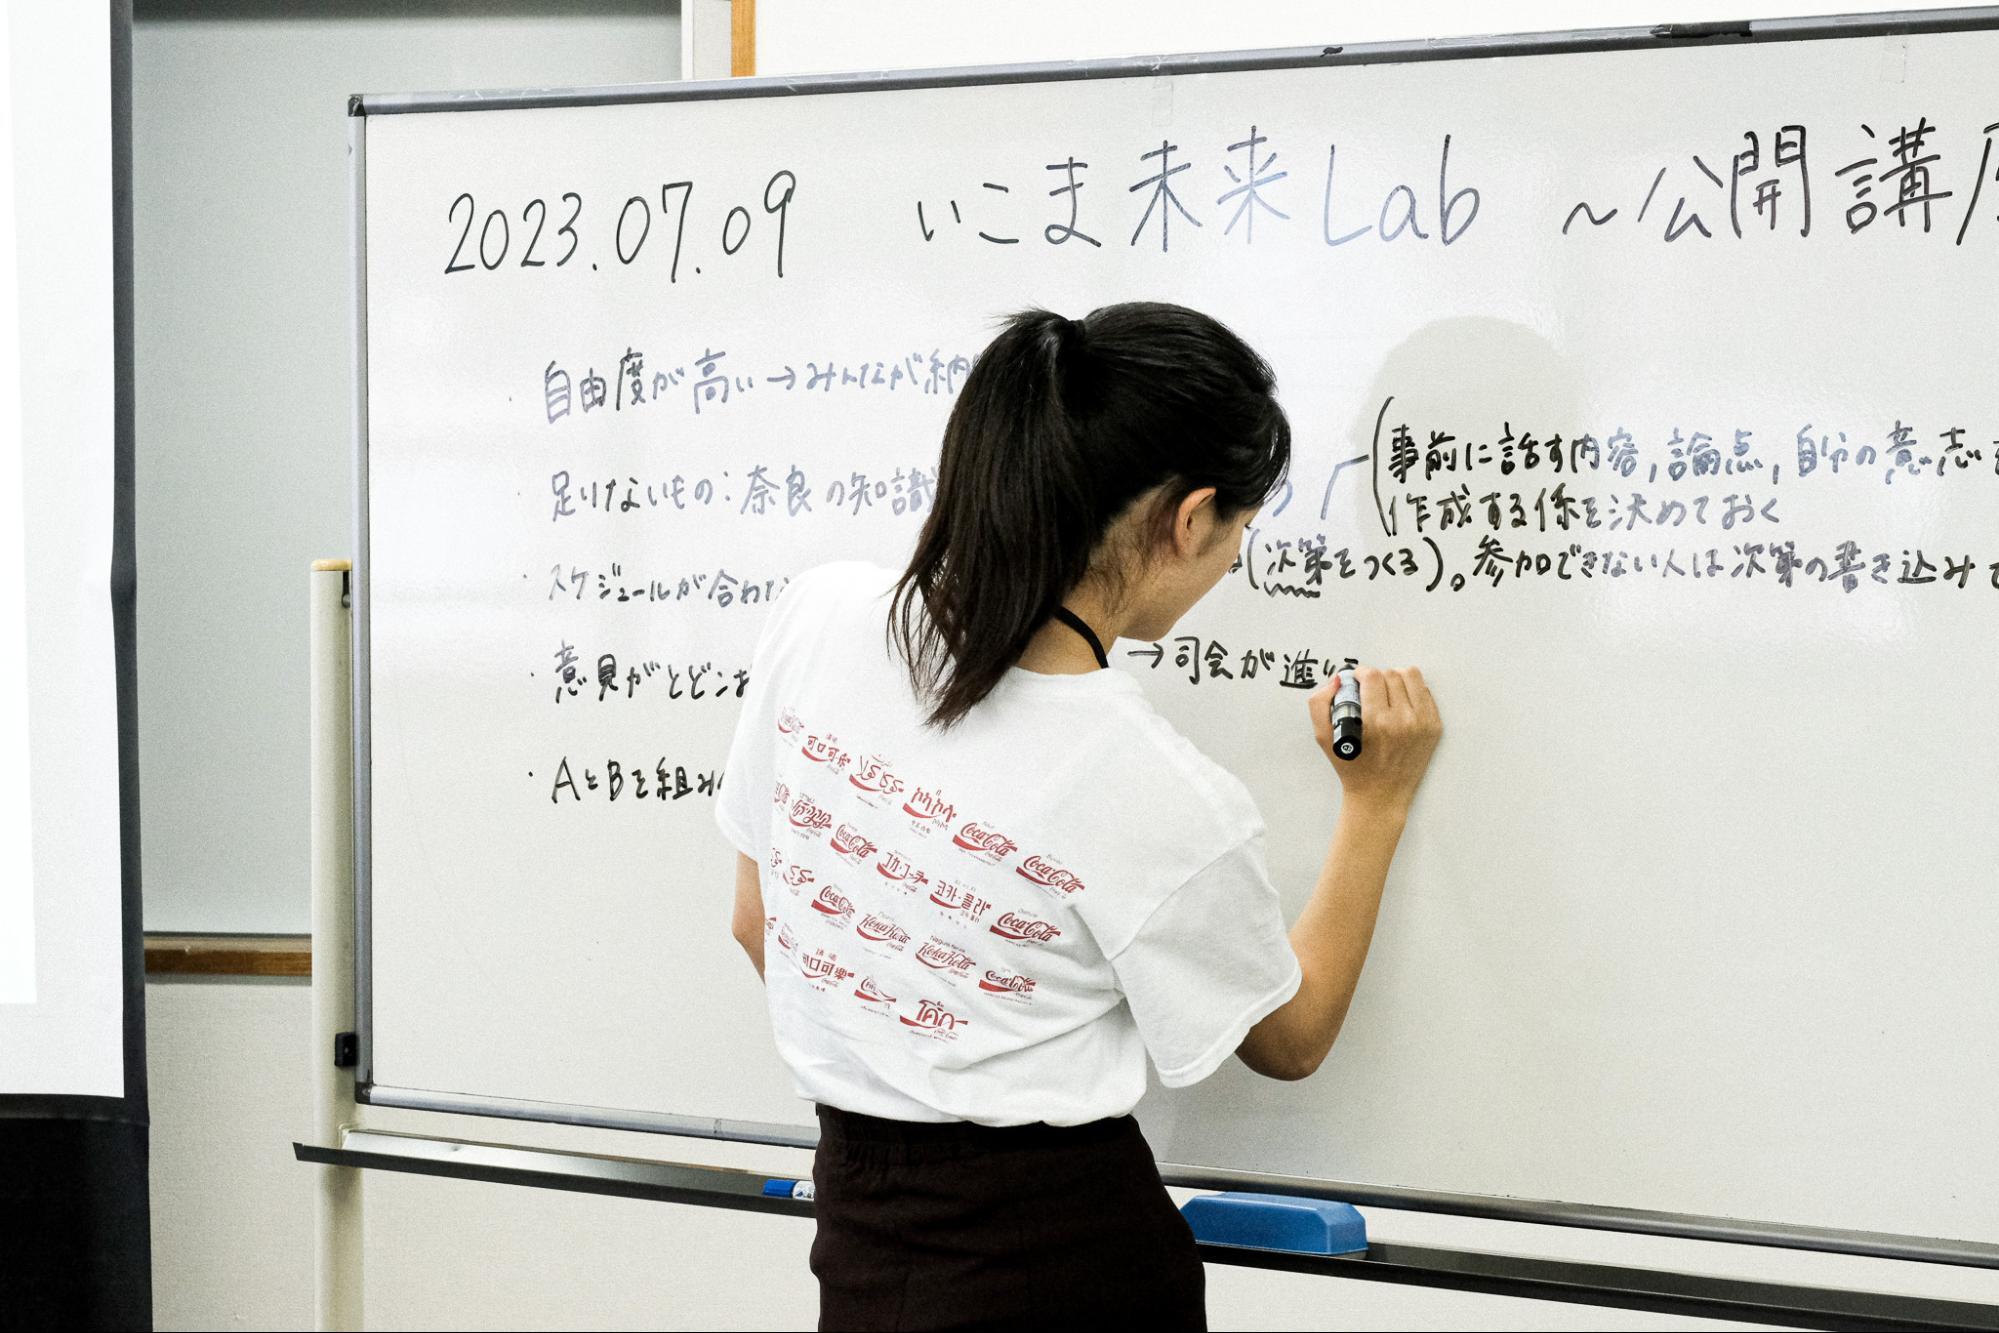 2023.07.09 いこま未来Lab ～公開講座
自由度が高い→みんなが納
足りないもの:奈良の知識
スケジュールが合わな
意見がとどこお
AとBを組み
(事前に話す内容,論点,自分の意志を
作成する係を決めておく
(次第をつくる)。参加できない人は次第の書き込みで
→司会が進
可口可樂
Coca-Cola
Coca-Cola
Coca-Cola
コカ・コーラ
코카·콜라
Coca-Cola
Coca-Cola
Koka Kola
可口可樂
Coca-Cola
โค้ก